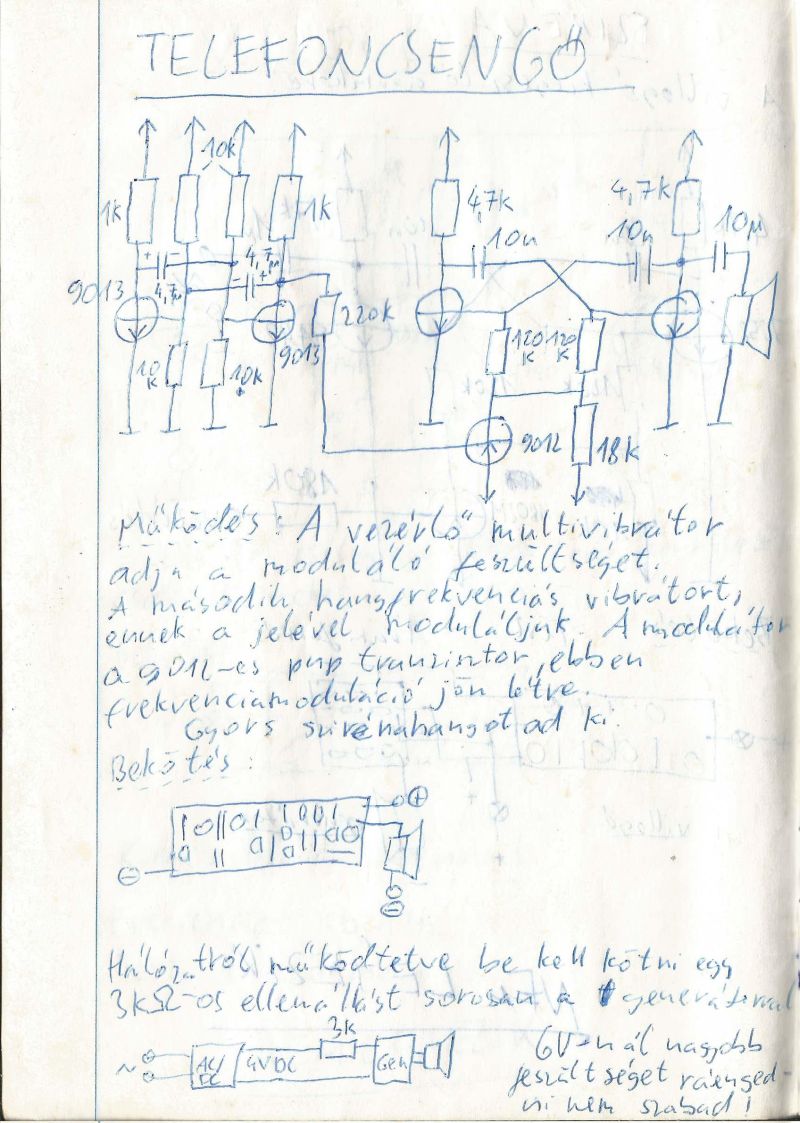 TELEFONCSENGŐ
10k
1k
1k
4,7k
4,7k
10n
10n
10µ
4,7µ
4,7µ
9013
220k
9013
10k
10k
120k
120k
9012
18k
Működés: A vezérlő multivibrátor
adja a moduláló feszültséget.
A második hangfrekvenciás vibrátort,
ennek a jelével moduláljuk. A modulátor
a 9012-es pnp tranzisztor, ebben
frekvenciamoduláció jön létre.
Gyors szirénahangot ad ki.
Bekötés:
Hálózatról működtetve be kell kötni egy
3kΩ-os ellenállást sorosan a generátorral
3k
~ AC/DC 4VDC Gen
6V-nál nagyobb
feszültséget ráenged-
ni nem szabad!